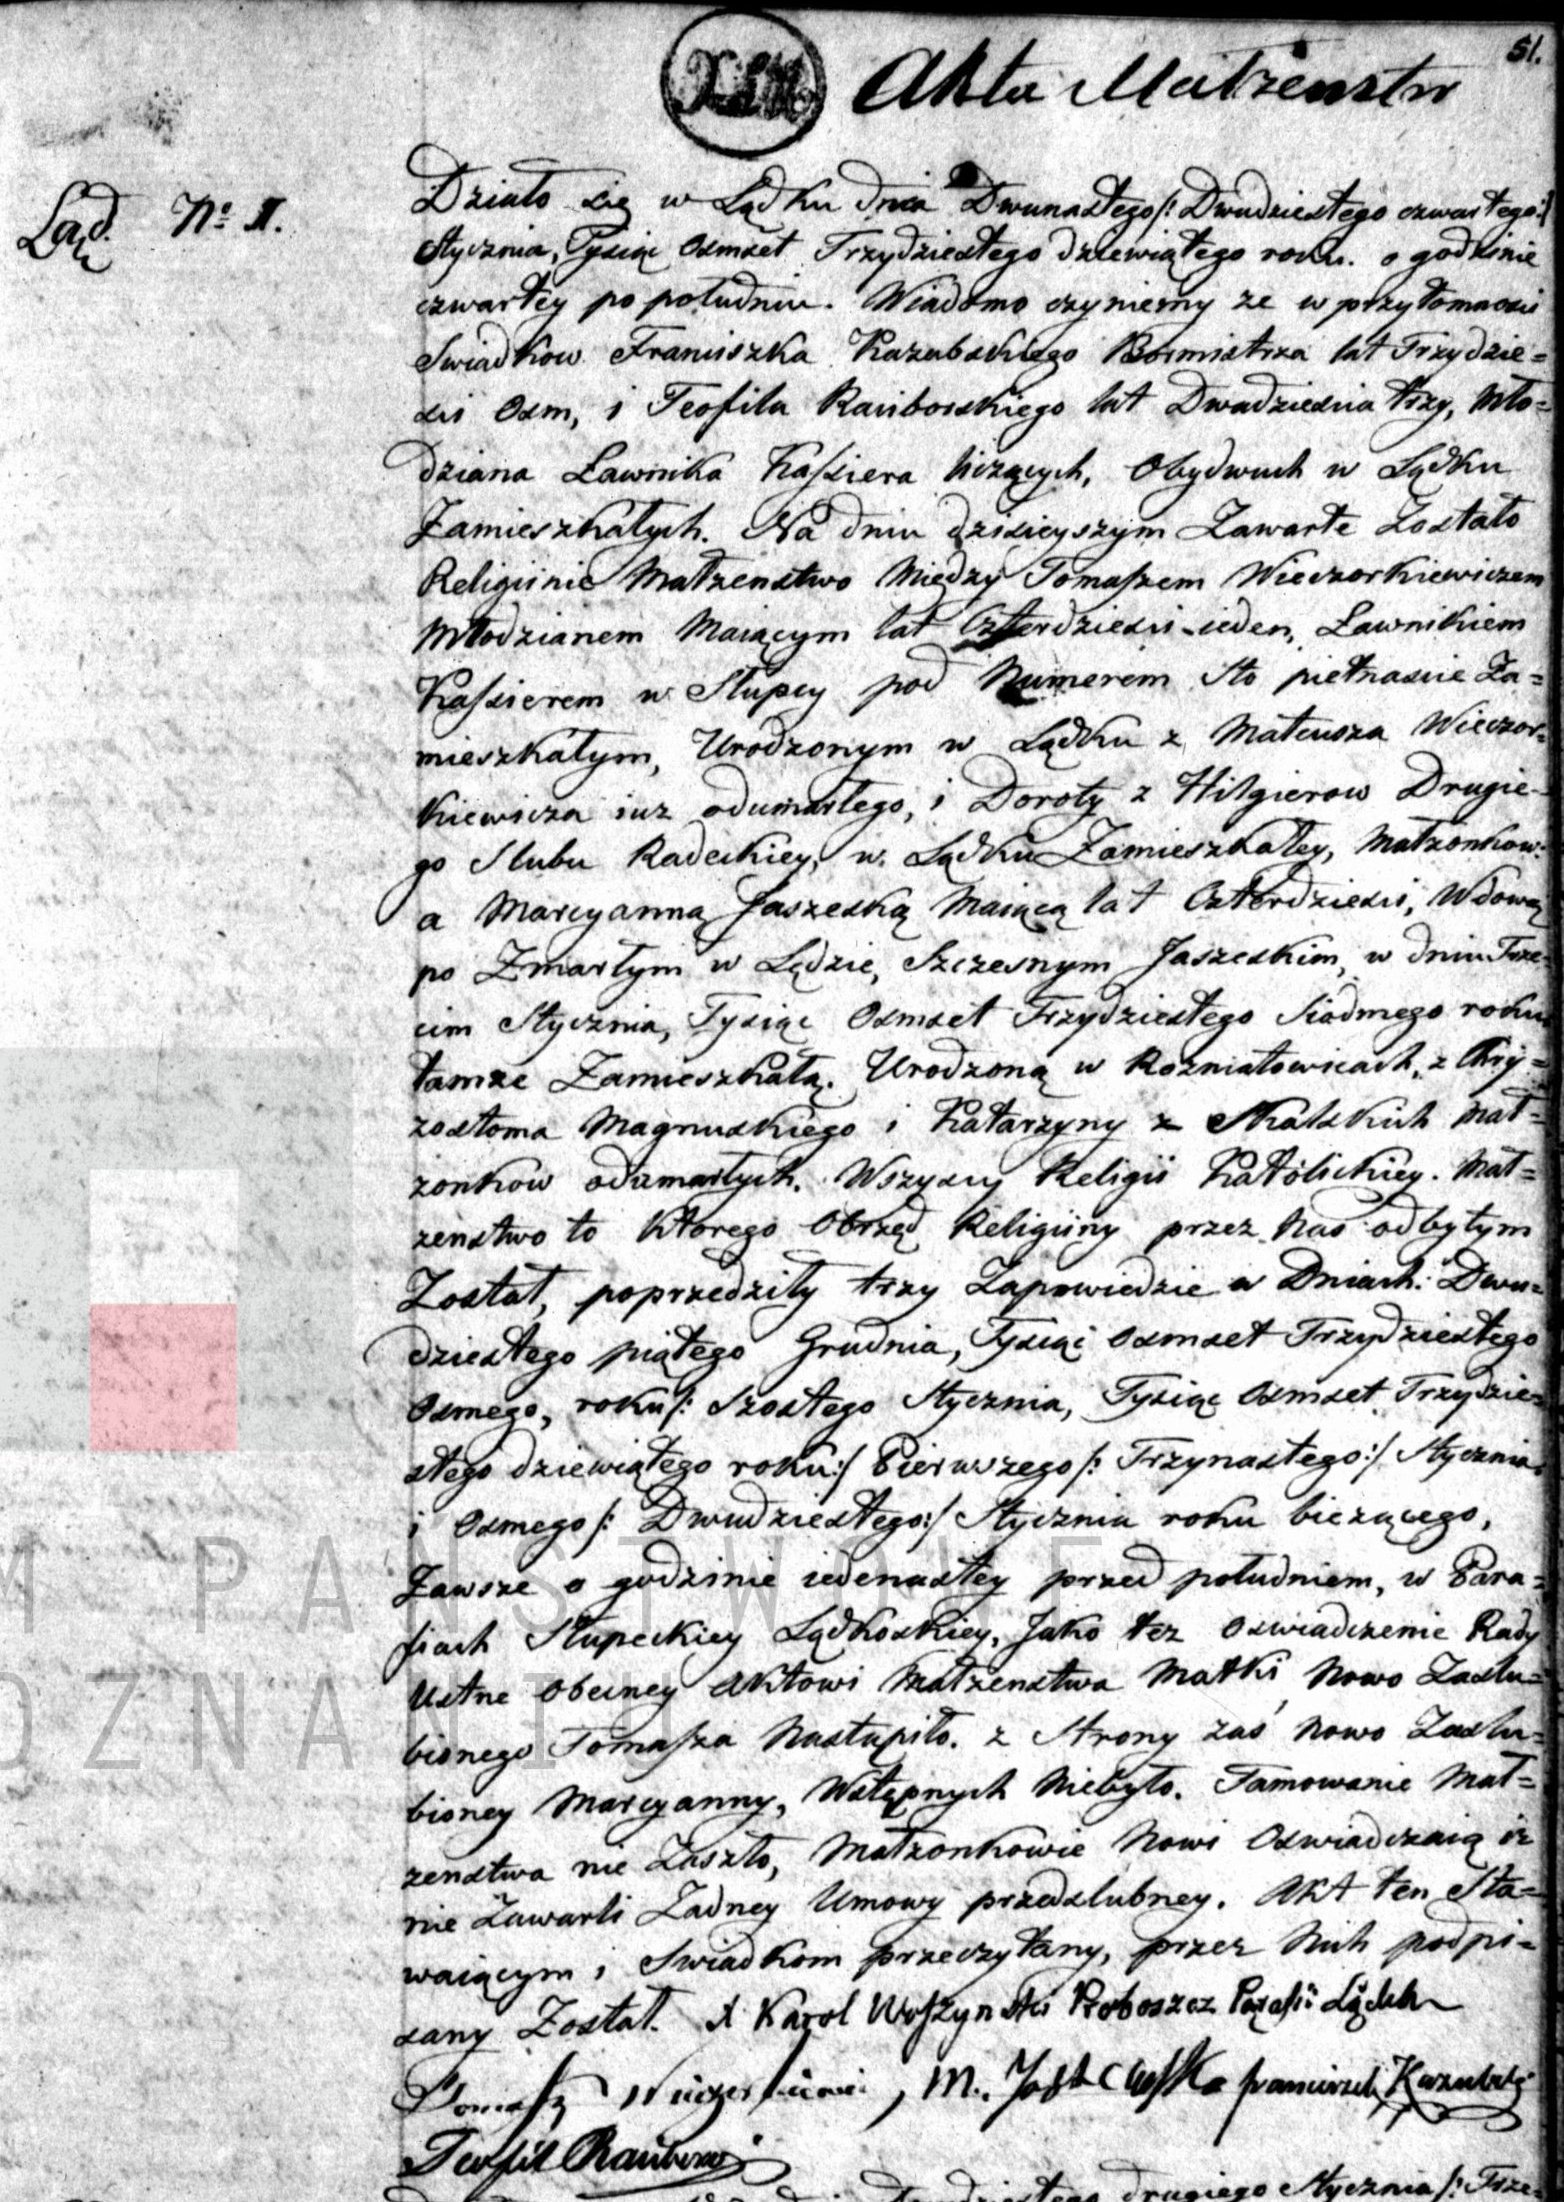 51.
Akta Małżenstw
Ląd. No I.
Działo się w Lądku dnia Dwunastego /: Dwudziestego czwartego :/
Stycznia, Tysiąc Osmset Trzydziestego dziewiątego roku. o godzinie
czwartey po południu. Wiadomo czyniemy ze w przytomności
Swiadkow Franciszka Kazubskiego Bormistrza lat Trzydzie=
sci Osm, i Teofila Raciborskiego lat Dwadziescia trzy, Mło=
dziana Ławnika Kassiera liczących, Obydwuch w Lądku
Zamieszkałych. Na dniu dzisieyszym Zawarte Zostało
Religiinie Małzenstwo Między Tomaszem Wieczorkiewiczem
Młodzianem Maiącym lat Czterdziesci ieden, Ławnikiem
Kassierem w Słupcy pod Numerem Sto pietnascie Za=
mieszkałym, Urodzonym w Lądku z Mateusza Wieczor=
kiewicza iuz odumarłego, i Doroty z Hilgierow Drugie=
go Slubu Radeckiey, w Lądku Zamieszkałey, Małzonkow.
a Marcyanną Jaszeską Maiącą lat Czterdziesci, Wdową
po Zmarłym w Lędzie, Szczesnym Jaszeskim, w dniu Trze=
cim Stycznia, Tysiąc Osmset Trzydziestego Siodmego roku
tamze Zamieszkałą. Urodzoną w Rozniatowicach, z Chry=
zostoma Magnuskiego i Katarzyny z Skalskich Mał=
zonkow odumarłych. Wszyscy Religii Katolickiey. Mał=
zenstwo to Ktorego Obrzęd Religiiny przez Nas odbytym
Został, poprzedziły trzy Zapowiedzie w Dniach: Dwu=
dziestego piątego Grudnia, Tysiąc Osmset Trzydziestego
Osmego, roku /: Szostego Stycznia, Tysiąc Osmset Trzydzie=
stego dziewiątego roku :/ Pierwszego /: Trzynastego :/ Stycznia
i Osmego /: Dwudziestego :/ Stycznia roku biezącego,
Zawsze o godzinie iedenastey przed południem, w Para=
fiach Słupeckiey Lądkoskiey, Jako tez Oswiadczenie Rady
Ustne Obecney Aktowi Małzenstwa Matki Nowo Zaslu=
bionego Tomasza Nastąpiło. z Strony zaś Nowo Zaslu=
bioney Marcyanny, Wstępnych Niebyło. Tamowanie Mał=
zenstwa nie Zaszło, Małzonkowie Nowi Oswiadczaią iz
nie Zawarli Zadney Umowy przedslubney. Akt ten Sta=
waiącym i Swiadkom przeczytany, przez Nich podpi=
sany Został. X Karol Woszynski Proboszcz Parafii Lądek
Tomasz Wieczorkiewicz, M. Jaszewska Franciszek Kazubski
Teofil Raciborski
drugiego Stycznia /: Trze=
M PAŃSTWOWE
OZNANIU